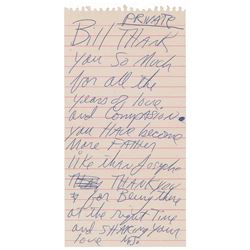 PRIVATE
Bill THANK
you So Much
for all the
years of love
and Compassion.
you HAVE become
More FATHER
like than Joseph
THANK you
for Being there
at the right Time
and SHARING your
love MJ.